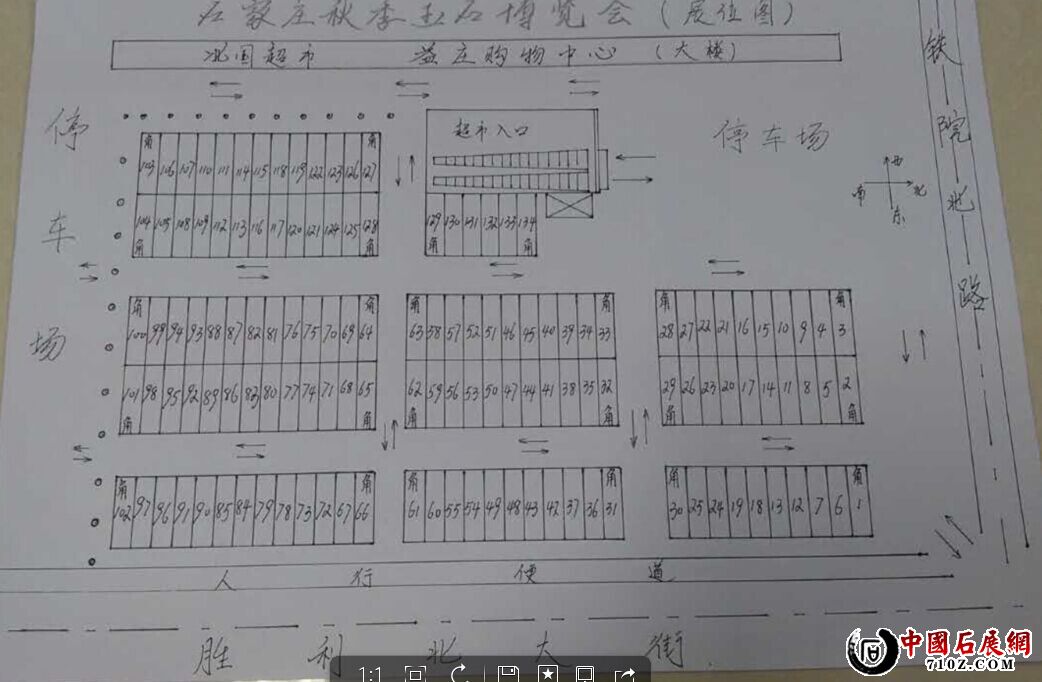 石家庄秋季玉石博览会(展位图)
北国超市 益庄购物中心 (大楼)
铁院北路
停车场
超市入口
停车场
西
南 北
东
角 角
103 106 107 110 111 114 115 118 119 122 123 126 127
104 105 108 109 112 113 116 117 120 121 124 125 128
角 角
129 130 131 132 133 134
角 角
角 角
100 99 94 93 88 87 82 81 76 75 70 69 64
101 98 95 92 89 86 83 80 77 74 71 68 65
角 角
角 角
63 58 57 52 51 46 45 40 39 34 33
62 59 56 53 50 47 44 41 38 35 32
角 角
角 角
28 27 22 21 16 15 10 9 4 3
29 26 23 20 17 14 11 8 5 2
角 角
角 角
102 97 96 91 90 85 84 79 78 73 72 67 66
角 角
61 60 55 54 49 48 43 42 37 36 31
角 角
30 25 24 19 18 13 12 7 6 1
人行便道
胜利北大街
1:1
中國石展網
710Z.COM